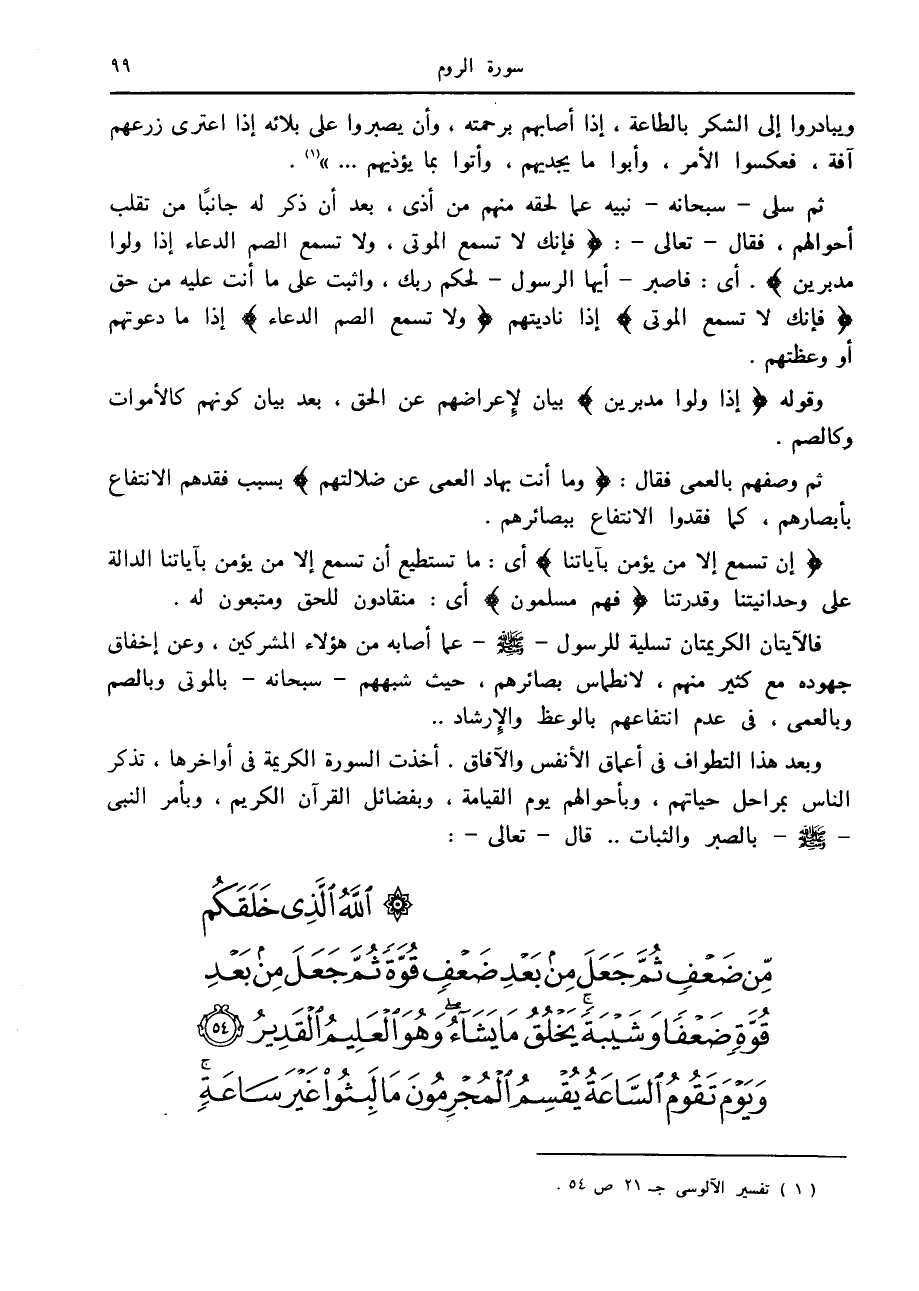 سورة الروم ٩٩
ويبادروا إلى الشكر بالطاعة ، إذا أصابهم برحمته ، وأن يصبروا على بلائه إذا اعترى زرعهم
آفة ، فعكسوا الأمر ، وأبوا ما يجديهم ، وأتوا بما يؤذيهم ... »(١) .
ثم سلى – سبحانه – نبيه عما لحقه منهم من أذى ، بعد أن ذكر له جانبًا من تقلب
أحوالهم ، فقال – تعالى – : ﴿ فإنك لا تسمع الموتى ، ولا تسمع الصم الدعاء إذا ولوا
مدبرين ﴾ . أى : فاصبر – أيها الرسول – لحكم ربك ، واثبت على ما أنت عليه من حق
﴿ فإنك لا تسمع الموتى ﴾ إذا ناديتهم ﴿ ولا تسمع الصم الدعاء ﴾ إذا ما دعوتهم
أو وعظتهم .
وقوله ﴿ إذا ولوا مدبرين ﴾ بيان لإعراضهم عن الحق ، بعد بيان كونهم كالأموات
وكالصم .
ثم وصفهم بالعمى فقال : ﴿ وما أنت بهاد العمى عن ضلالتهم ﴾ بسبب فقدهم الانتفاع
بأبصارهم ، كما فقدوا الانتفاع ببصائرهم .
﴿ إن تسمع إلا من يؤمن بآياتنا ﴾ أى : ما تستطيع أن تسمع إلا من يؤمن بآياتنا الدالة
على وحدانيتنا وقدرتنا ﴿ فهم مسلمون ﴾ أى : منقادون للحق ومتبعون له .
فالآيتان الكريمتان تسلية للرسول – ﷺ – عما أصابه من هؤلاء المشركين ، وعن إخفاق
جهوده مع كثير منهم ، لانطماس بصائرهم ، حيث شبههم – سبحانه – بالموتى وبالصم
وبالعمى ، فى عدم انتفاعهم بالوعظ والإرشاد ..
وبعد هذا التطواف فى أعماق الأنفس والآفاق . أخذت السورة الكريمة فى أواخرها ، تذكر
الناس بمراحل حياتهم ، وبأحوالهم يوم القيامة ، وبفضائل القرآن الكريم ، وبأمر النبى
– ﷺ – بالصبر والثبات .. قال – تعالى – :
۞ ٱللَّهُ ٱلَّذِى خَلَقَكُم
مِّن ضَعْفٍ ثُمَّ جَعَلَ مِنۢ بَعْدِ ضَعْفٍ قُوَّةً ثُمَّ جَعَلَ مِنۢ بَعْدِ
قُوَّةٍ ضَعْفًا وَشَيْبَةً ۚ يَخْلُقُ مَا يَشَآءُ ۖ وَهُوَ ٱلْعَلِيمُ ٱلْقَدِيرُ ﴿٥٤﴾
وَيَوْمَ تَقُومُ ٱلسَّاعَةُ يُقْسِمُ ٱلْمُجْرِمُونَ مَا لَبِثُوا۟ غَيْرَ سَاعَةٍ ۚ
( ١ ) تفسير الآلوسى جـ ٢١ ص ٥٤ .